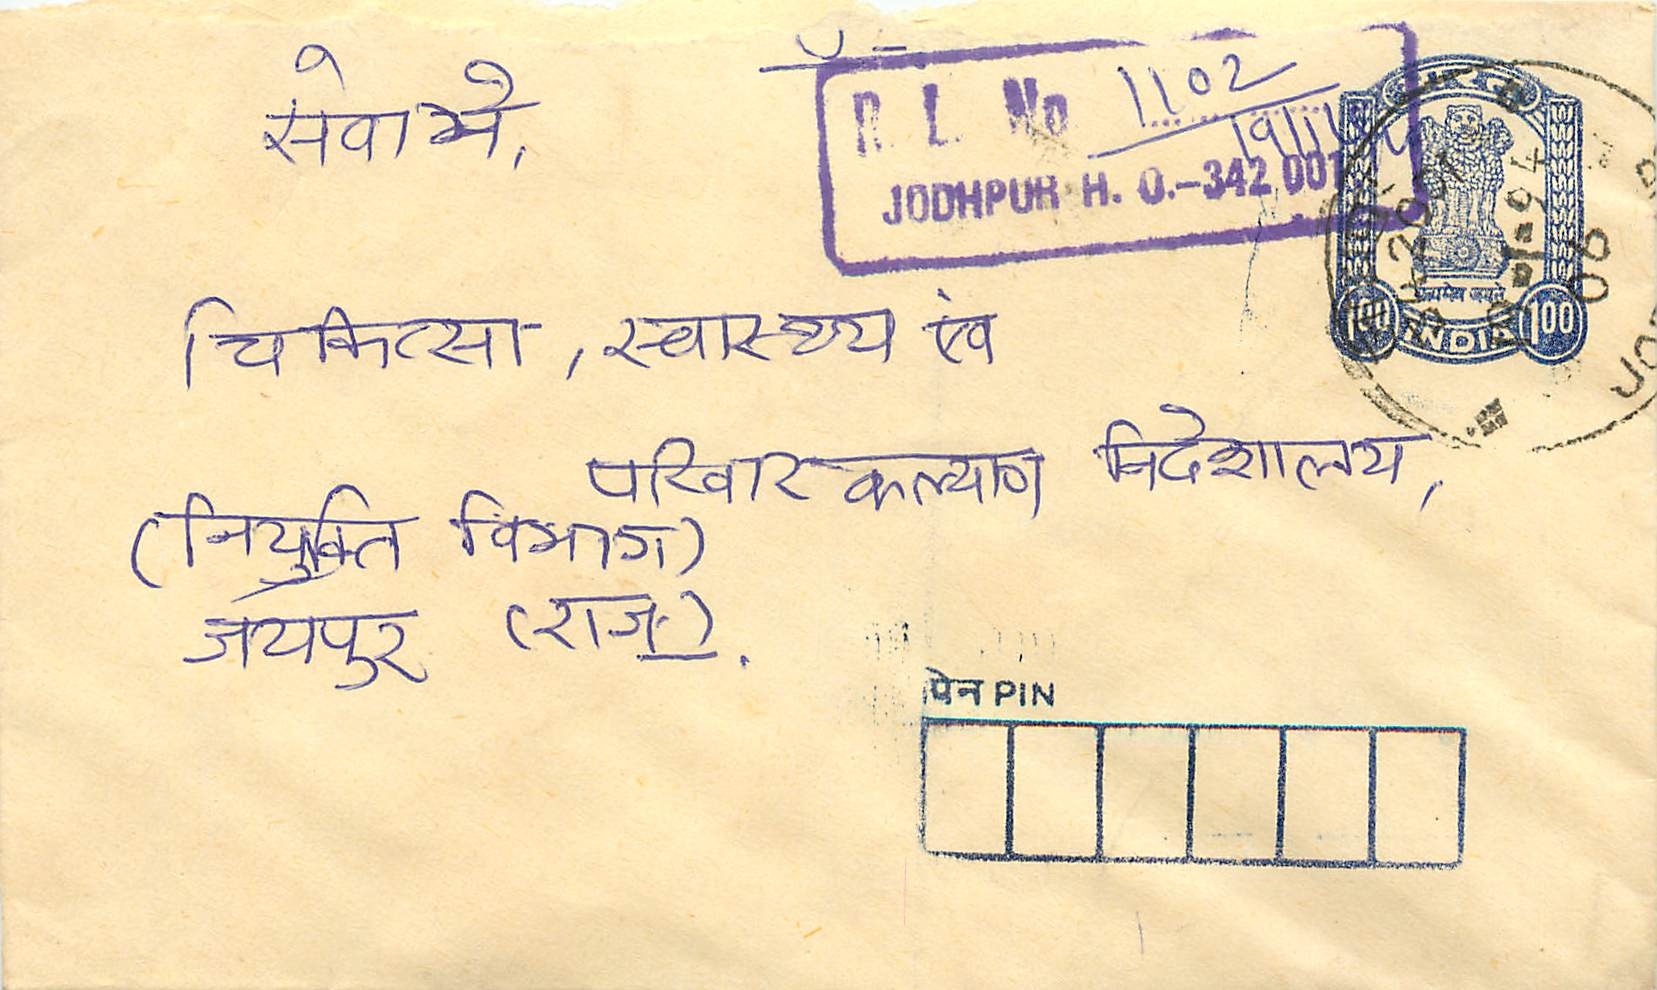 सेवा में,
R. L. No 1102
JODHPUR H. O.-342 001
भारत
सत्यमेव जयते
1.00 INDIA 1.00
चिकित्सा, स्वास्थ्य एंव
परिवार कल्याण निदेशालय,
(नियुक्ति विभाग)
जयपुर (राज.).
पिन PIN